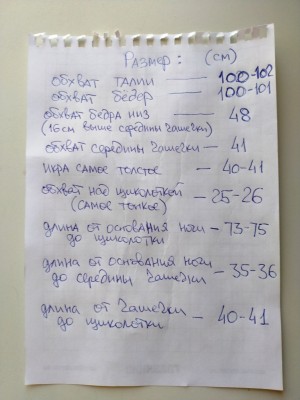 Размер: (см)
обхват талии — 100-102
обхват бёдер — 100-101
обхват бедра низ — 48
(16см выше середины чашечки)
обхват середины чашечки — 41
икра самое толстое — 40-41
обхват над щиколоткой — 25-26
(самое тонкое)
длина от основания ноги — 73-75
до щиколотки
длина от основания ноги — 35-36
до середины чашечки
длина от чашечки — 40-41
до щиколотки